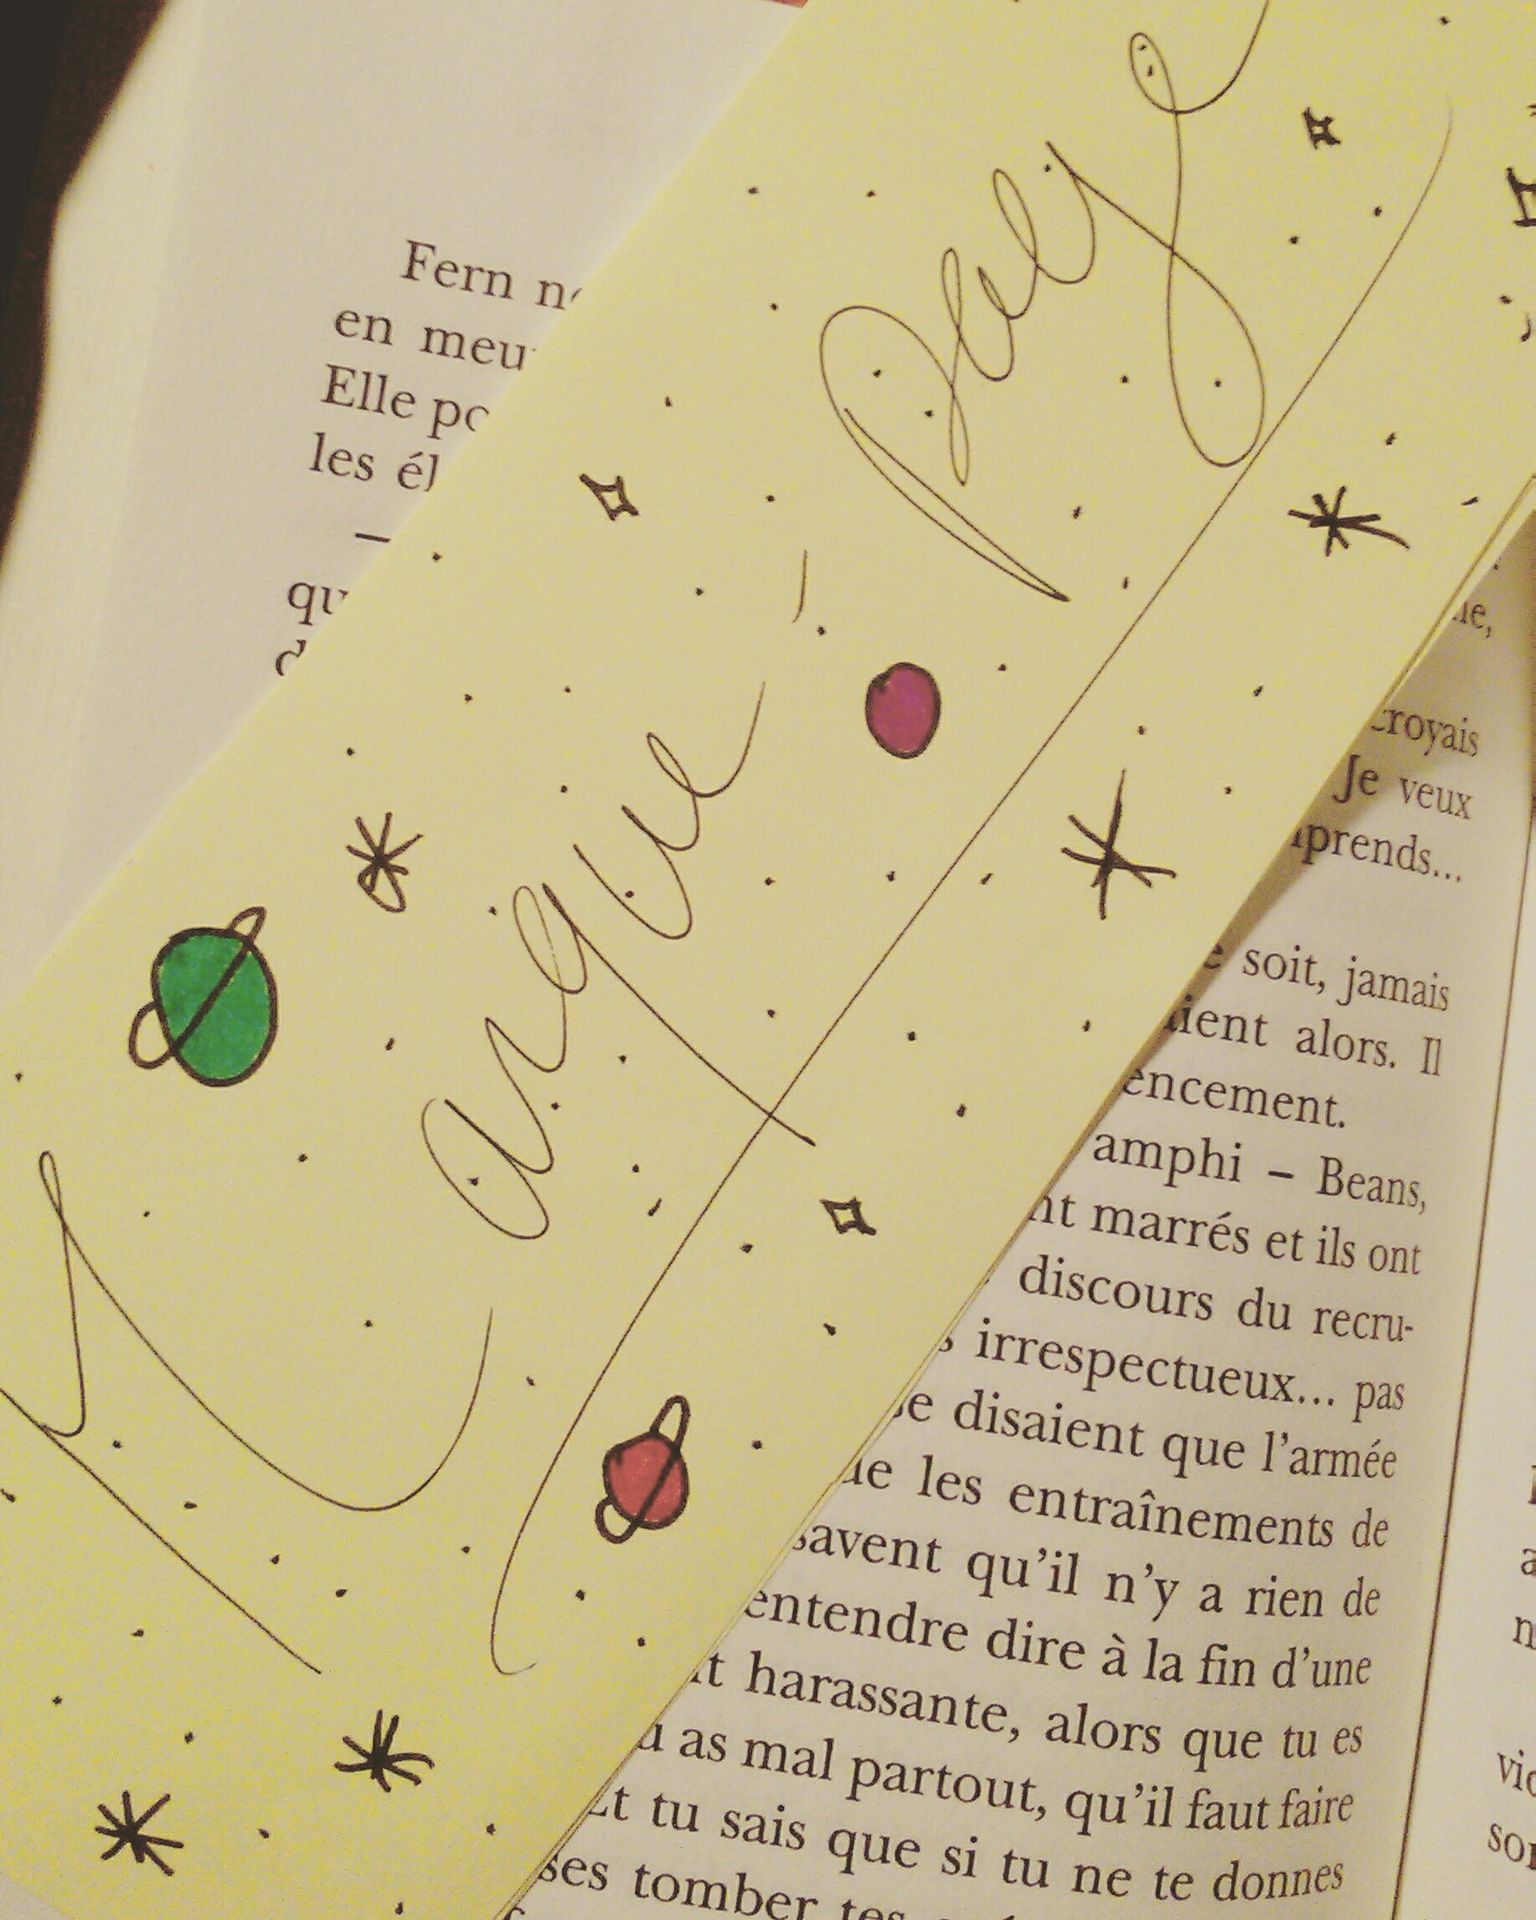 Marque-Page
Fern
en
Elle
les
–
croyais
Je veux
soit, jamais
alors. Il
amphi – Beans,
marrés et ils ont
discours du recru-
irrespectueux... pas
disaient que l'armée
les entraînements de
savent qu'il n'y a rien de
entendre dire à la fin d'une
harassante, alors que tu es
as mal partout, qu'il faut faire
Et tu sais que si tu ne te donnes
tomber tes